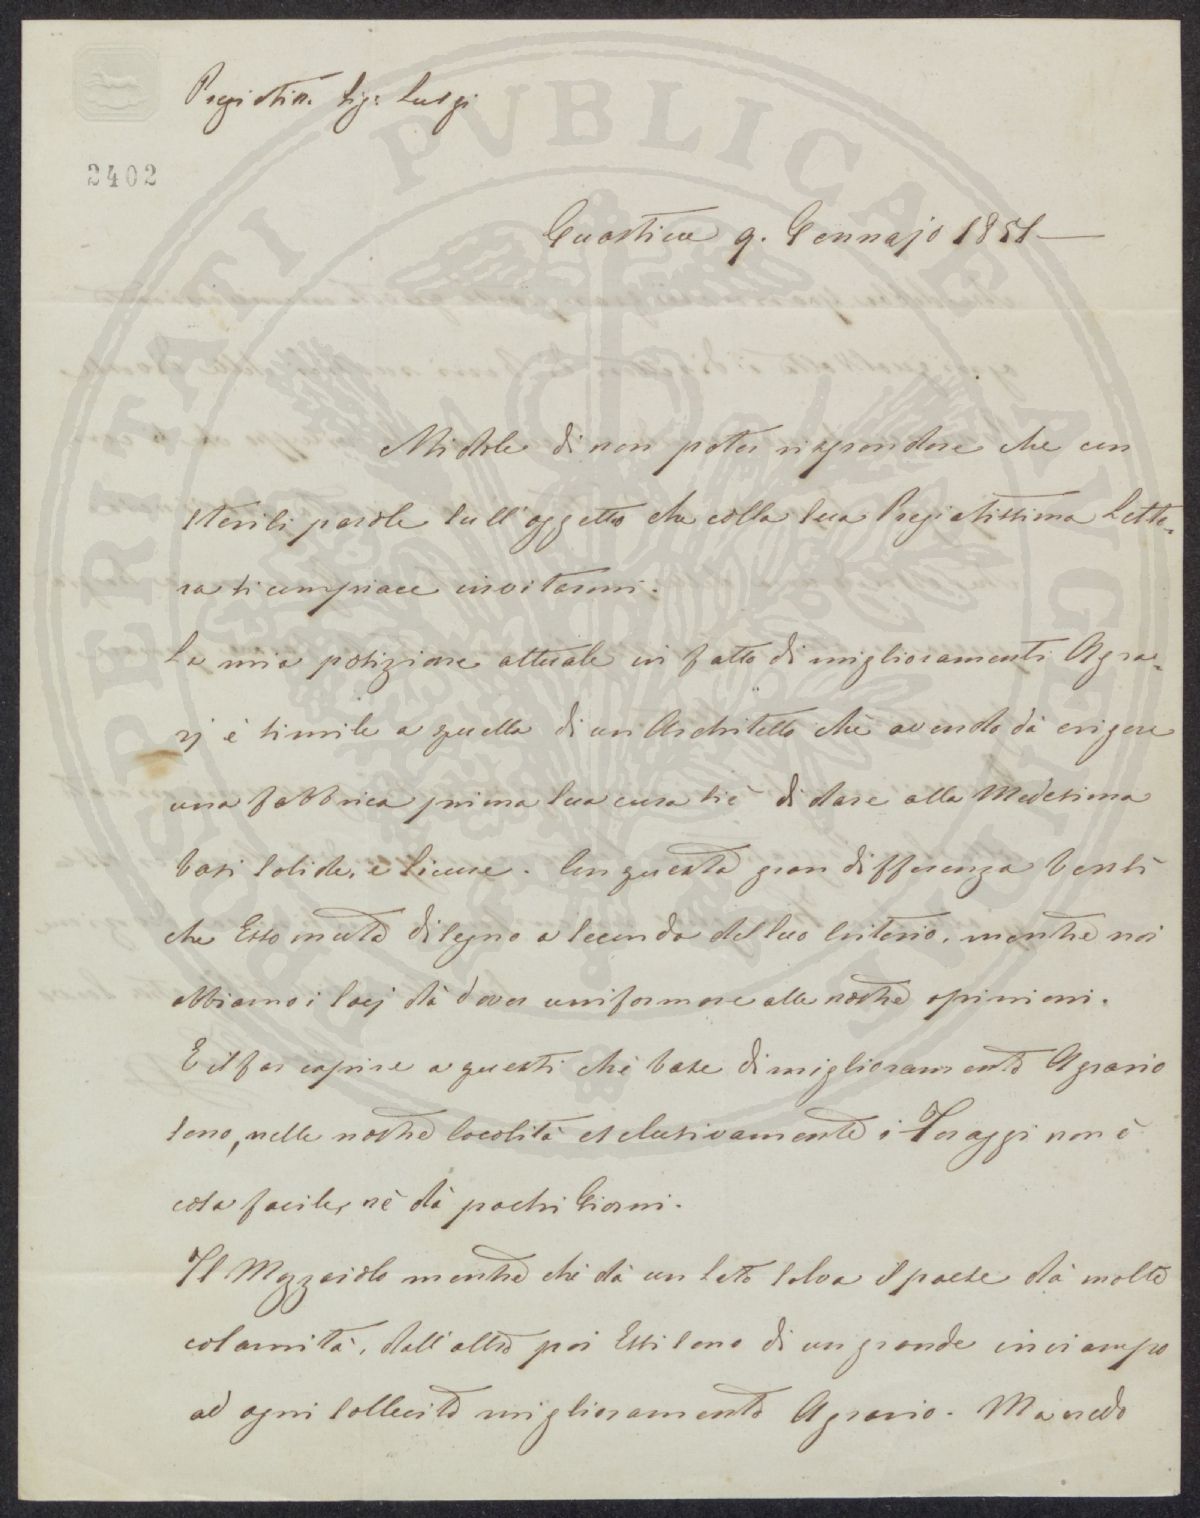 Pregiatiss. Sig: Luigi
2402
Guastice 9. Gennajo 1851
Mi dole di non poter rispondere che con
sterili parole sull'oggetto che colla sua Pregiatissima Lette-
ra si compiace invitarmi.
La mia posizione attuale in fatto di miglioramenti Agra-
rj è simile a quella di un Architetto che avendo dà erigere
una fabbrica prima sua cura si è di dare alla Medesima
basi solide, e sicure. Con questa gran differenza bensì
che Esso muta disegno a seconda del suo criterio, mentre noi
abbiamo i Socj dà dover uniformare alle nostre opinioni.
E il far capire a questi che base di miglioramento Agrario
sono, nelle nostre località esclusivamente i Foraggi non è
cosa facile, nè dà pochi Giorni.
Il Mezzaiolo mentre che dà un lato salva il paese dà molte
calamità, dall'altro poi Essi sono di un grande inciampo
ad ogni sollecito miglioramento Agrario. Ma credo
PROSPERITATI PVBLICAE AVGENDAE